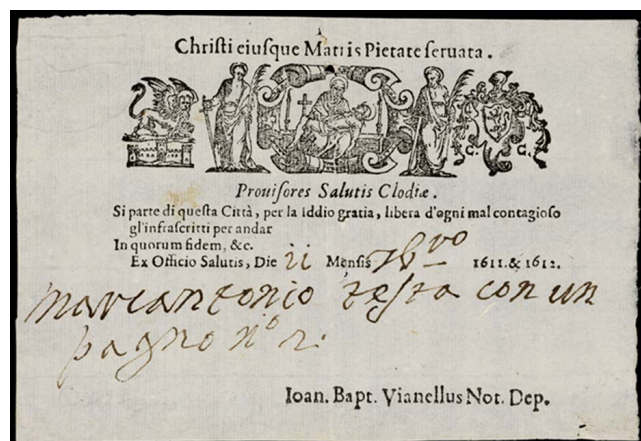 Christi eiusque Matris Pietate seruata.
C. G.
Prouisores Salutis Clodiæ.
Si parte di questa Città, per la Iddio gratia, libera d'ogni mal contagioso
gl'infrascritti per andar
In quorum fidem, &c.
Ex Officio Salutis, Die ii Mensis 1611. & 1612.
marcantonio testa con un
pagno nº 2.
Ioan. Bapt. Vianellus Not. Dep.